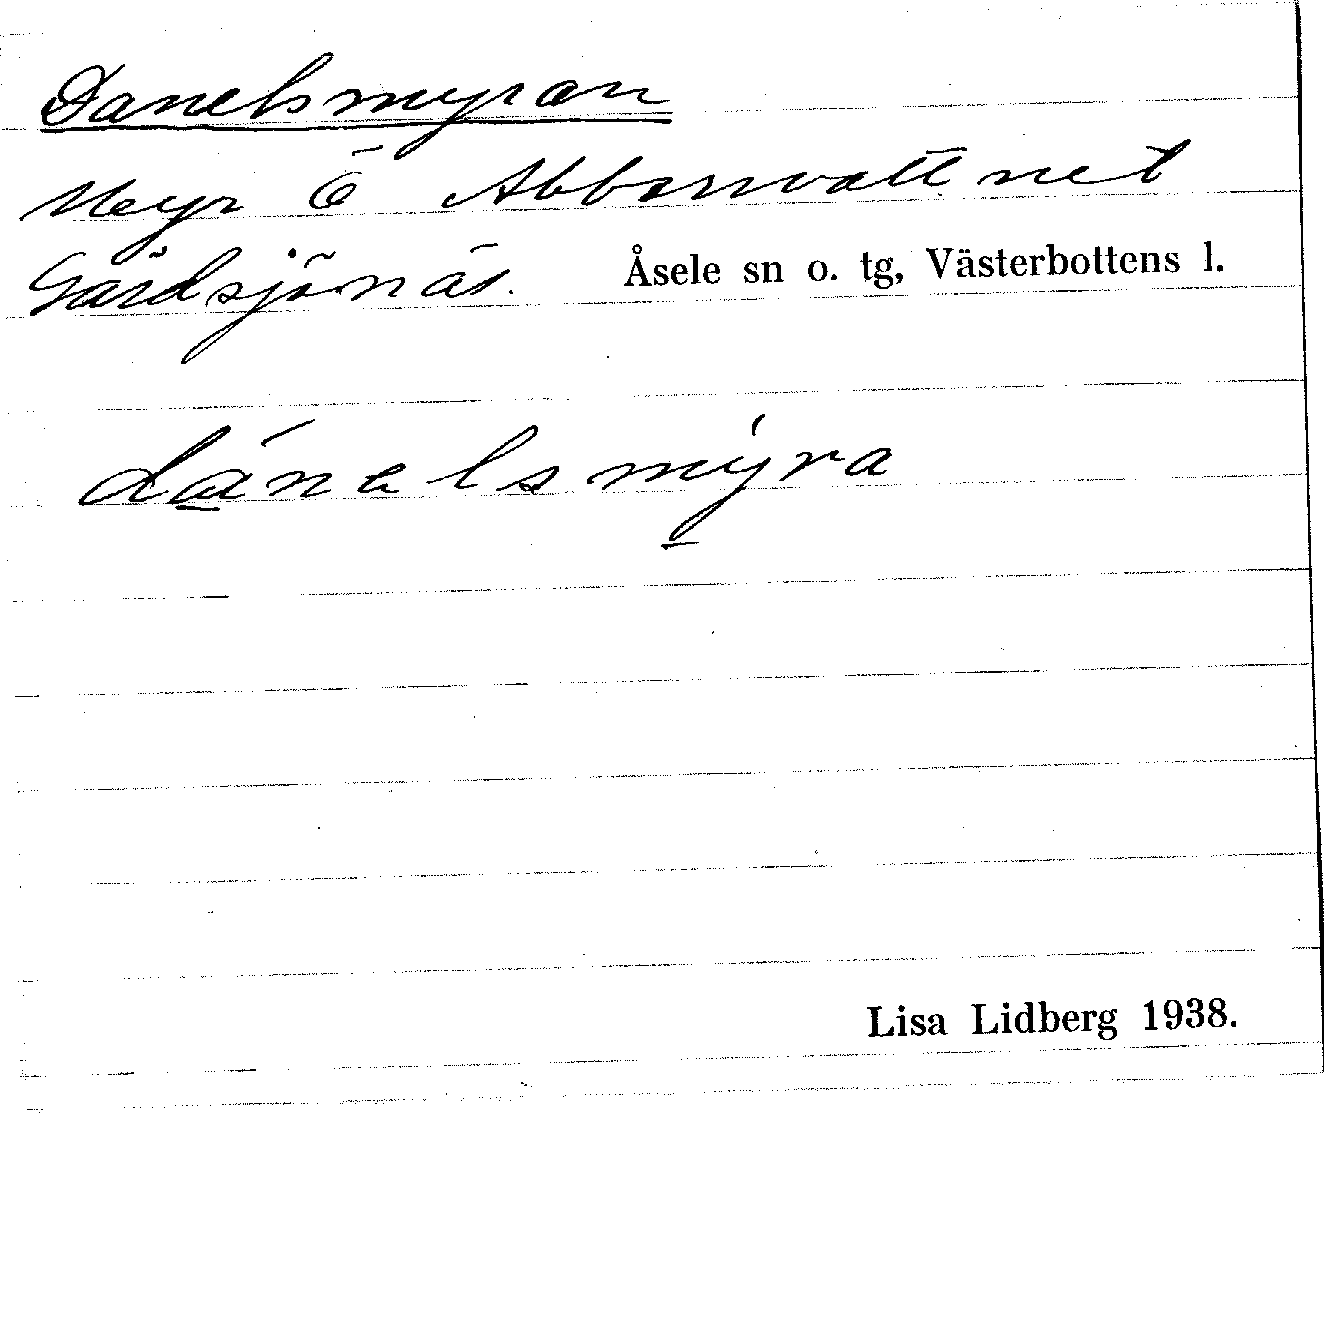 Danelsmyran
Myr Ö Abborrvattnet
Gårdsjönäs. Åsele sn o. tg, Västerbottens l.
dánelsmýra
Lisa Lidberg 1938.